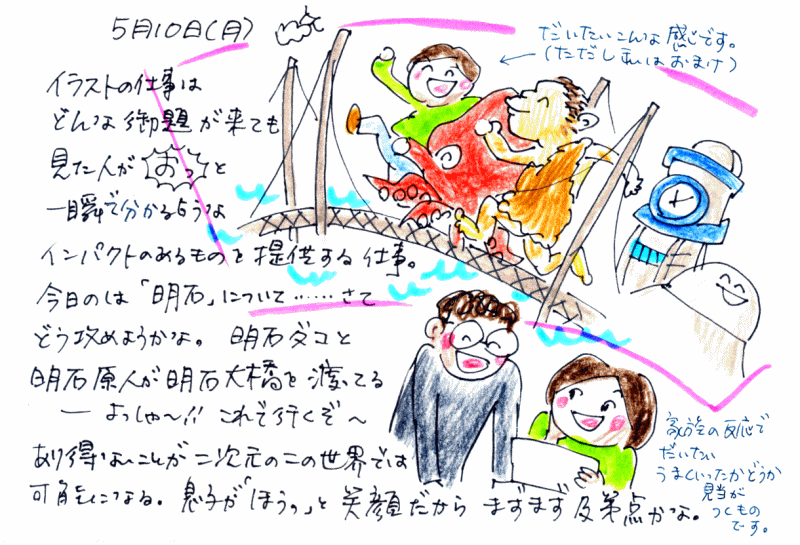 5月10日(月)
イラストの仕事は
どんな御題が来ても
見た人が おっ と
一瞬で分かるような
インパクトのあるものを提供する仕事。
今日のは「明石」について……さて
どう攻めようかな。 明石ダコと
明石原人が明石大橋を渡ってる
― よっしゃ~!! これで行くぞ~
あり得ないことが二次元のこの世界では
可能になる。息子が「ほうっ」と笑顔だから まずまず及第点かな。
だいたいこんな感じです。
(ただし私はおまけ)
家族の反応で
だいたい
うまくいったかどうか
見当が
つくもの
です。